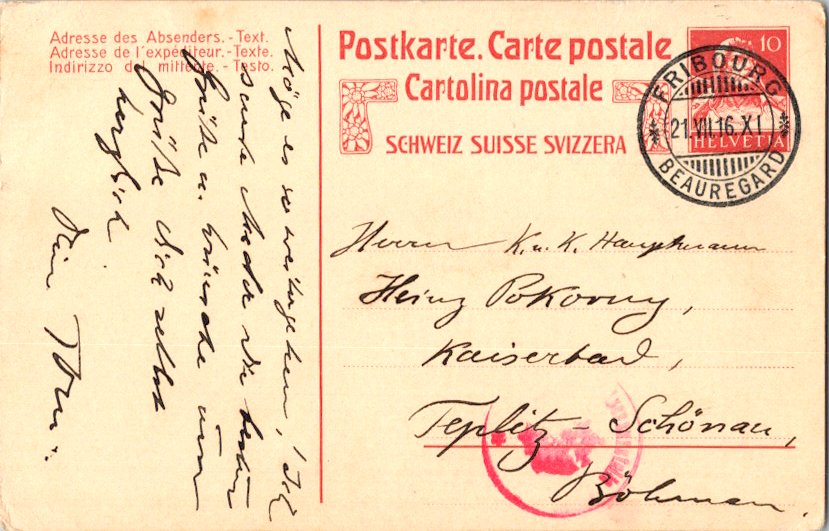 Adresse des Absenders. - Text.
Adresse de l'expéditeur. - Texte.
Indirizzo del mittente. - Testo.
Postkarte. Carte postale
Cartolina postale
SCHWEIZ SUISSE SVIZZERA
10
HELVETIA
FRIBOURG
21.VII.16.XI
BEAUREGARD
Möge es so weitergehen! Ich
sende wieder die besten
Grüße u. Wünsche und
Grüße dich selbst
herzlich
Dein
Herrn K. u. K. Hauptmann
Heinz Pokorny,
Kaiserbad,
Teplitz - Schönau,
Böhmen.